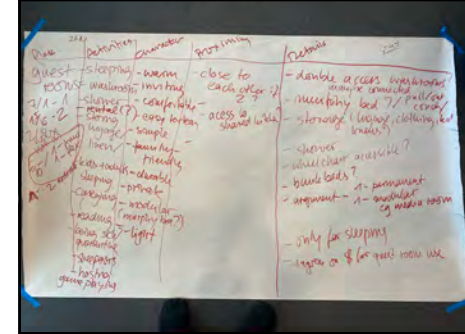 Place
Activities
Character
Proximity
Details
guest
rooms
- sleeping
- washroom
- shower
- storing
luggage/
linen/
- kids + adults
sleeping
- caregiving
- reading
- being sick/
quarantine
- sleepovers
- hosting
game playing
- warm
- inviting
- comfortable
- easy to clean
- simple
- family
friendly
- durable
- private
- modular
(murphy bed?)
- light
- close to
each other?
2?
- access to
shared
- double access washrooms
- murphy bed?/
- storage (luggage, clothing,
linens?
- shower
- wheelchair accessible?
- bunk beds?
- argument - 1 - permanent
1 - modular
eg media room
- only for sleeping
$ for guest room use